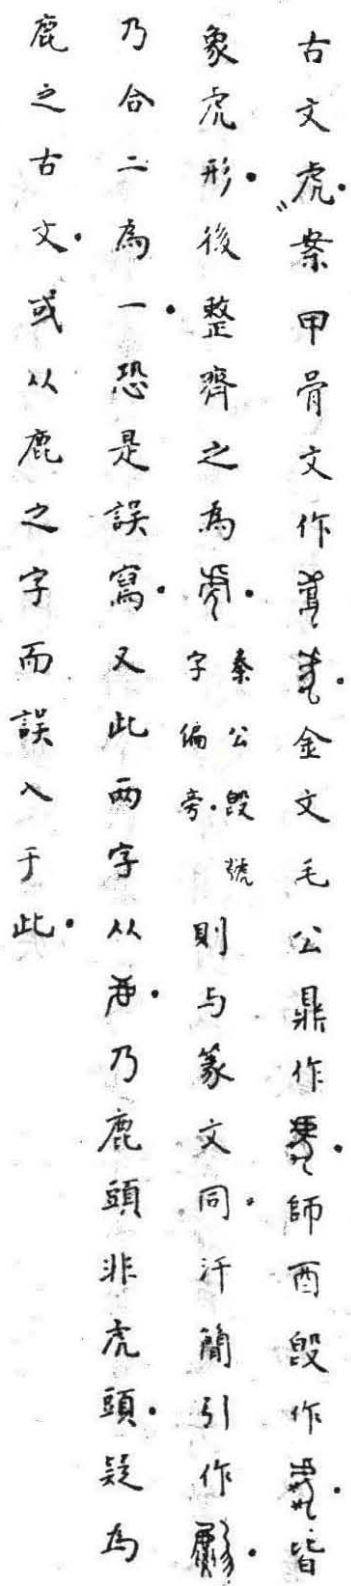 古文虎案甲骨文作金文毛公鼎作師酉𣪘作皆
象虎形後整齊之為秦公𣪘號字偏旁則与篆文同汗簡引作
乃合二為一恐是誤寫又此兩字从乃鹿頭非虎頭疑為
鹿之古文或从鹿之字而誤入于此